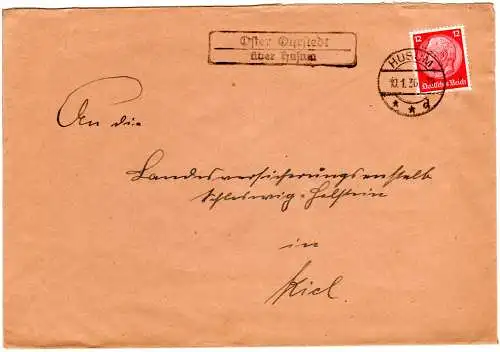 Oster Ohrstedt
über Husum
HUSUM
10.1.36
* * d
12 12
Deutsches Reich
An die
Landesversicherungsanstalt
Schleswig-Holstein
in
Kiel.